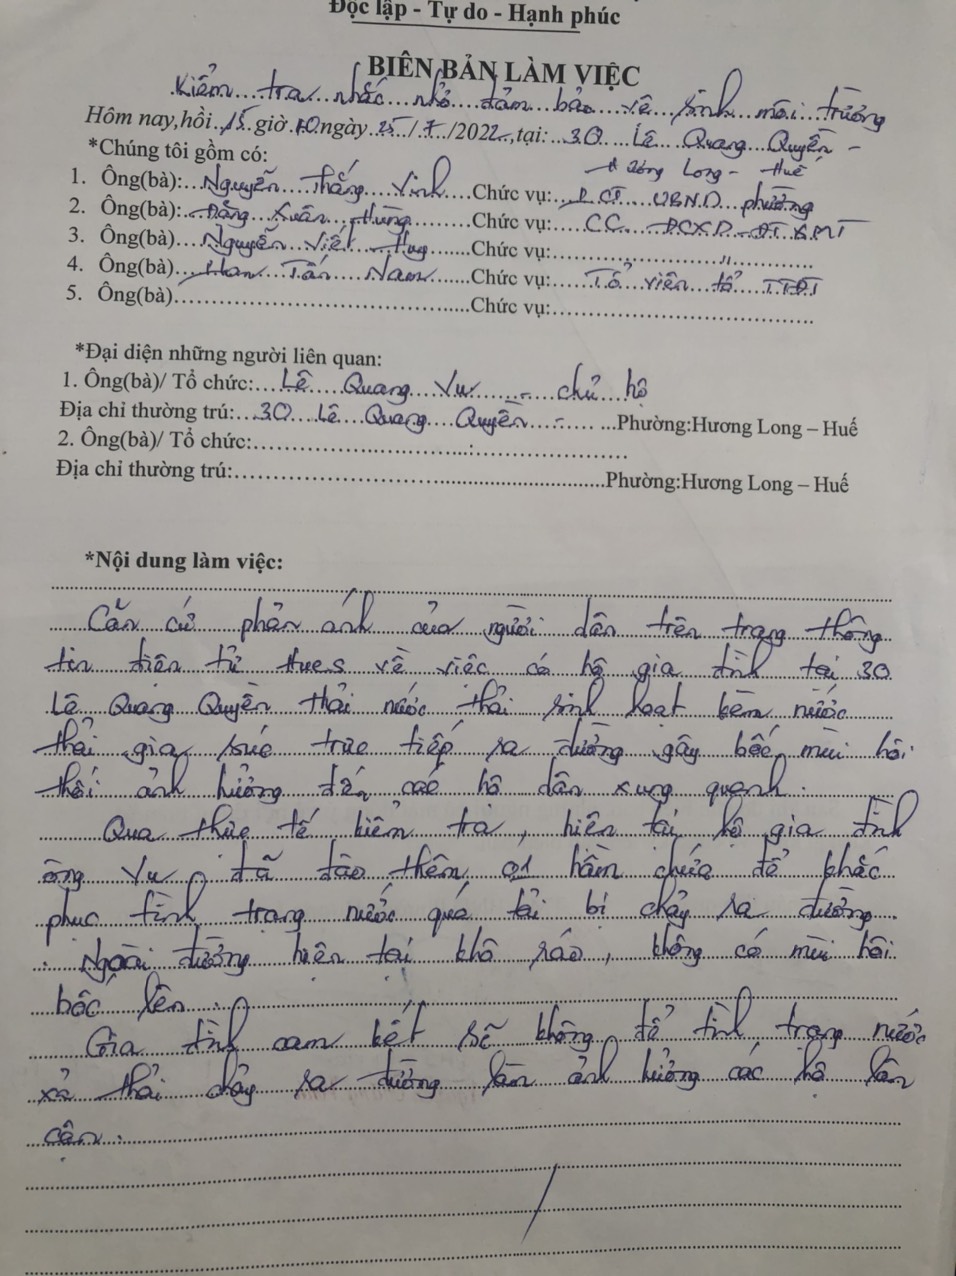 Độc lập - Tự do - Hạnh phúc
BIÊN BẢN LÀM VIỆC
Kiểm tra nhắc nhỏ đảm bảo vệ sinh môi trường
Hôm nay, hồi 15 giờ 10 ngày 25/7/2022, tại: 30 Lê Quang Quyền -
*Chúng tôi gồm có: P. Hương Long - Huế
1. Ông(bà): Nguyễn Thắng Vinh Chức vụ: P.CT UBND phường
2. Ông(bà): Đặng Xuân Hùng Chức vụ: CC ĐCXD-ĐT&MT
3. Ông(bà) Nguyễn Viết Huy Chức vụ: "
4. Ông(bà) Tấn Nam Chức vụ: Tổ viên tổ TTĐT
5. Ông(bà) Chức vụ:
*Đại diện những người liên quan:
1. Ông(bà)/ Tổ chức: Lê Quang Vư - chủ hộ
Địa chỉ thường trú: 30 Lê Quang Quyền - Phường:Hương Long – Huế
2. Ông(bà)/ Tổ chức:
Địa chỉ thường trú: Phường:Hương Long – Huế
*Nội dung làm việc:
Căn cứ phản ánh của người dân trên trang thông
tin điện tử HueS về việc có hộ gia đình tại 30
Lê Quang Quyền thải nước thải sinh hoạt kèm nước
thải gia súc trực tiếp ra đường gây bốc mùi hôi
thối ảnh hưởng đến các hộ dân xung quanh.
Qua thực tế kiểm tra, hiện tại hộ gia đình
ông Vư đã đào thêm 01 hầm chứa để khắc
phục tình trạng nước quá tải bị chảy ra đường.
Ngoài đường hiện tại khô ráo, không có mùi hôi
bốc lên.
Gia đình cam kết sẽ không để tình trạng nước
xả thải chảy ra đường làm ảnh hưởng các hộ lân
cận.